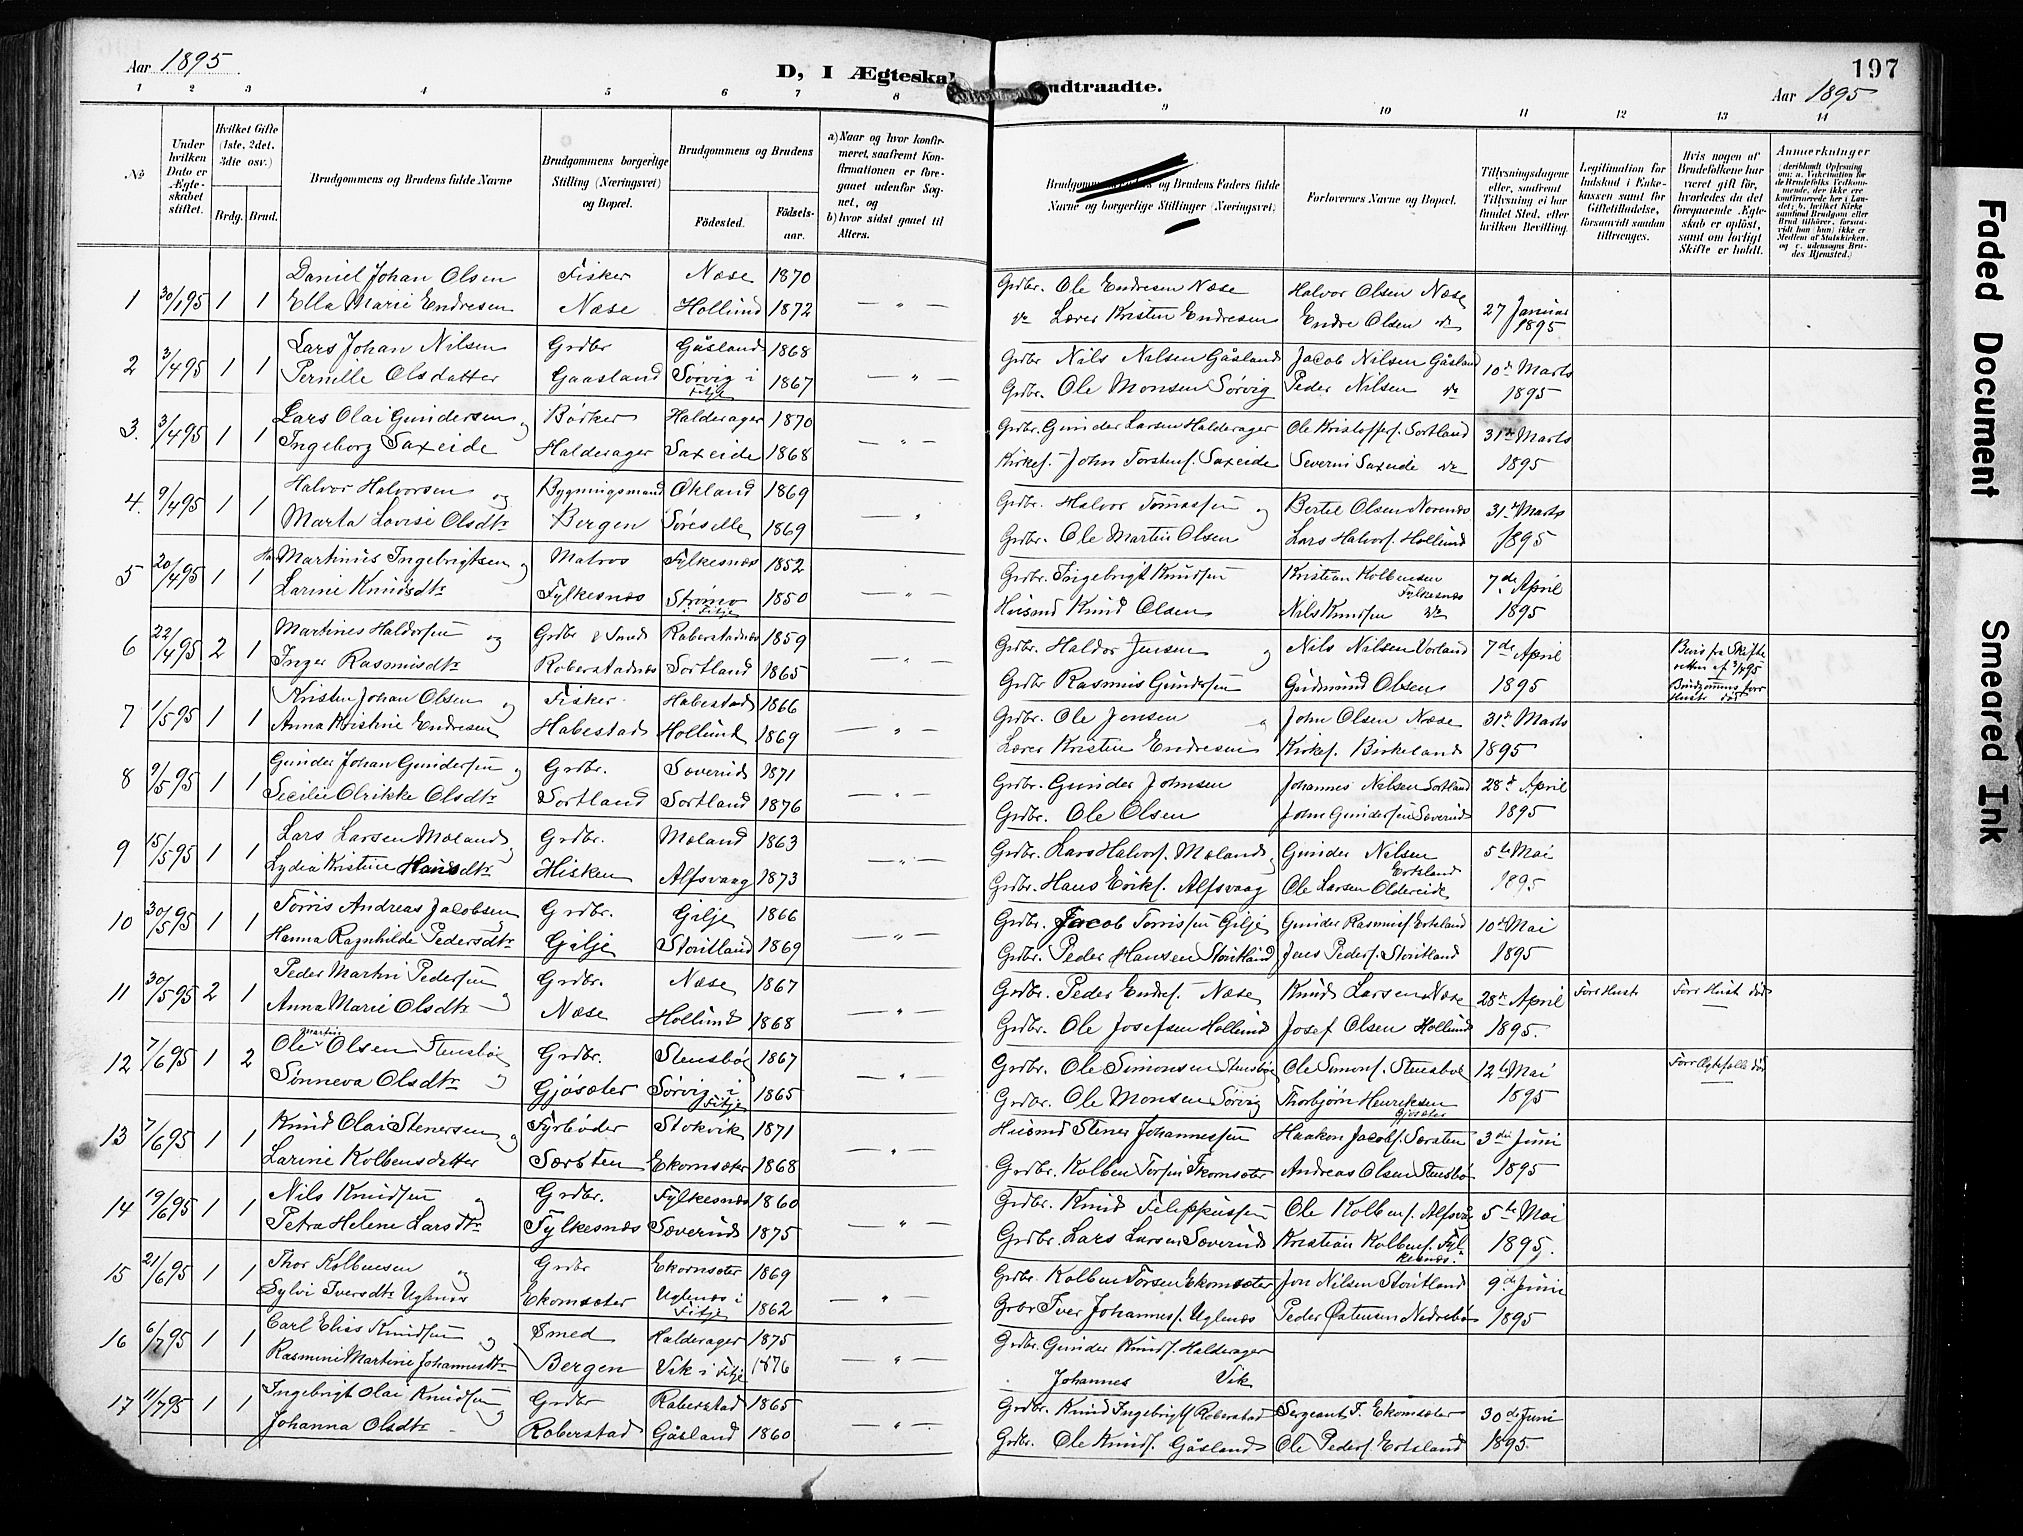 Aar 1895
D, I Ægteska
ndtraadte.
197
Aar 1895
1 2 3 4 5 6 7 8 9 10 11 12 13 14
No
Under hvilken Dato er Ægteskabet stiftet.
Hvilket Gifte (1ste, 2det, 3die osv.)
Brdg. Brud.
Brudgommens og Brudens fulde Navne
Brudgommens borgerlige Stilling (Næringsvei) og Bopæl.
Brudgommens og Brudens
Fødested.
Fødselsaar.
a) Naar og hvor konfirmeret, saafremt Konfirmationen er foregaaet udenfor Sognet, og
b) hvor sidst gaaet til Alters.
og Brudens Faders fulde
Navne og borgerlige Stillinger (Næringsvei)
Forlovernes Navne og Bopæl.
Tillysningsdagene eller, saafremt Tillysning ei har fundet Sted, efter hvilken Bevilling.
Legitimation for Indskud i Enkekassen samt for Giftetilladelse, forsaavidt saadan tiltrænges.
Hvis nogen af Brudefolkene har været gift før, hvorledes da det foregaaende Ægteskab er opløst, samt om lovligt Skifte er holdt.
Anmærkninger
(deriblandt Oplysning om: a. Vakcination for de Brudefolks Vedkommende, der ikke ere konfirmerede her i Landet; b. hvilket Kirkesamfund Brudgom eller Brud tilhører, forsaavidt han (hun) ikke er Medlem af Statskirken, og c. udensogns Brudes Hjemsted.)
1 30/1 95 1 1 Daniel Johan Olsen Fisker Næse 1870 Grdbr. Ole Endresen Næse Halvor Olsen Næse 27 Januar
Ella Marie Endresen Næse Hollund 1872 — " — Lærer Kristen Endresen Endre Olsen 1895
2 3/4 95 1 1 Lars Johan Nilsen Grdbr Gåsland 1868 Grdbr Nils Nilsen Gåsland Jacob Nilsen Gåsland 10de Marts
Pernille Olsdatter Gaasland Sørvig i Fitje 1867 — " — Grdbr. Ole Monsen Sørvig Peder Nilsen 1895
3. 3/4 95 1 1 Lars Olai Gundersen og Bødker Halderager 1870 Grdbr. Gunder Larsen Halderager Ole Kristoffers. Sortland 31te Marts
Ingeborg Saxeide Halderager Saxeide 1868 — " — Kirkes. John Torstens. Saxeide Severin Saxeide 1895
4. 9/4 95 1 1 Halvor Halvorsen og Bygningsmand Økland 1869 Grdbr. Halvor Tomassen og Bertel Olsen Norenæs 31te Marts
Marta Lovise Olsdtr Bergen 1869 Grdbr. Ole Martin Olsen Lars Halvors. Hollund 1895
5 20/4 95 1 1 Martinus Ingebrigtsen og Matros Fylkesnæs 1852 Grdbr. Ingebrigt Knudsen Kristian Kolbensen Fylkesnæs 7de April
Larine Knudsdtr Fylkesnæs Strømø i Fitje 1850 — " — Husmd Knud Olsen Nils Knudsen 1895
6 22/4 95 2 1 Martines Haldorsen og Grdbr & Smed Roberstadnæs 1859 Grdbr. Haldor Jensen og Nils Nilsen Vorland 7de April Bevis fra Skifteretten af 3/4 95
Inger Rasmusdtr Roberstadnæs Sortland 1865 — " — Grdbr Rasmus Gundersen Gudmund Olsen 1895 Brudgommens forr Hustr død
7 1/5 95 1 1 Kristen Johan Olsen og Fisker Habestad 1866 Grdbr. Ole Jensen John Olsen Næse 31te Marts
Anna Kristine Endresen Habestad Hollund 1869 — " — Lærer Kristen Endresen Kirkes. Birkeland 1895
8 9/5 95 1 1 Gunder Johan Gundersen og Grdbr. Sæverud 1871 Grdbr. Gunder Johnsen Johannes Nilsen Sortland 28de April
Secilie Olrikke Olsdtr Sortland Sortland 1876 — " — Grdbr. Ole Olsen John Gundersen Sæverud 1895
9 15/5 95 1 1 Lars Larsen Mæland og Grdbr. Mæland 1863 Grdbr. Lars Halvors. Mæland og Gunder Nilsen Ertsland 5te Mai
Lydia Kristine Hansdtr. Hisken Alfsvaag 1873 — " — Grdbr. Hans Eriks. Alfsvaag Ole Larsen Oldereide 1895
10 30/5 95 1 1 Torris Andreas Jacobsen og Grdbr. Gilje 1866 Grdbr. Jacob Torrissen Gilje Gunder Rasmuss Ertsland 10de Mai
Hanna Ragnhilde Pedersdtr Gilje Stoutland 1869 — " — Grdbr. Peder Hansen Stoutland Jens Peders. Stoutland 1895
11 30/5 95 2 1 Peder Martin Pedersen og Grdbr. Næse 1867 Grdbr. Peder Endres. Næse Knud Larsen Næse 28de April Forr Hustr Forr Hust død
Anna Marie Olsdtr Næse Hollund 1868 — " — Grdbr. Ole Josefsen Hollund Josef Olsen Hollund 1895.
12 7/6 95 1 2 Ole Martin Olsen Stensbø og Grdbr. Stensbø 1867 Grdbr. Ole Simonsen Stensbø Ole Simons. Stensbøe 12te Mai Forr Ægtefælle død
Sønneva Olsdtr Gjøsæter Sørvig i Fitje 1865 — " — Grdbr. Ole Monsen Sørvig Thorbjørn Henriksen Gjøsæter 1895
13 7/6 95 1 1 Knud Olai Stenersen og Fyrbøder Stokvik 1871 Husmd Stener Johannessen Haakon Jacobs. Særsten 3die Juni
Larine Kolbensdatter Særsten Ekornsæter 1868 — " — Grdbr. Kolben Torsen Ekornsæter Andreas Olsen Stensbø 1895
14 19/6 95 1 1 Nils Knudsen og Grdbr. Fylkesnæs 1860 Grdbr. Knud Fileppussen Ole Kolbens. Alfsvåg 5te Mai
Petra Helene Larsdtr Fylkesnæs Sæverud 1875 — " — Grdbr. Lars Larsen Sæverud Kristian Kolbens. Fylkesnæs. 1895.
15 21/6 95 1 1 Thor Kolbensen og Grdbr Ekornsæter 1869 Grdbr. Kolben Torsen Ekornsæter Jon Nilsen Stoutland 9de Juni
Sylvi Iversdtr Uglenæs Ekornsæter Uglenæs i Fitje 1862 — " — Grdbr Iver Johanness. Uglenæs Peder Østensen Nedrebø 1895
16 6/7 95 1 1 Carl Elias Knudsen og Smed Halderager 1875 Grdbr. Gunder Knuds. Halderager
Rasmine Martine Johannesdtr Bergen Vik i Fitje 1876 — " — Johannes Vik
17 11/7 95 1 1 Ingebrigt Olai Knudsen og Grdbr Roberstad 1865 Grdbr. Knud Ingebrigts Roberstad Sergeant T. Ekornsæter 30de Juni
Johanna Olsdtr. Roberstad Gåsland 1860 — " — Grdbr. Ole Knuds. Gåsland Ole Peders. Ertsland 1895.
Faded Document
Smeared Ink